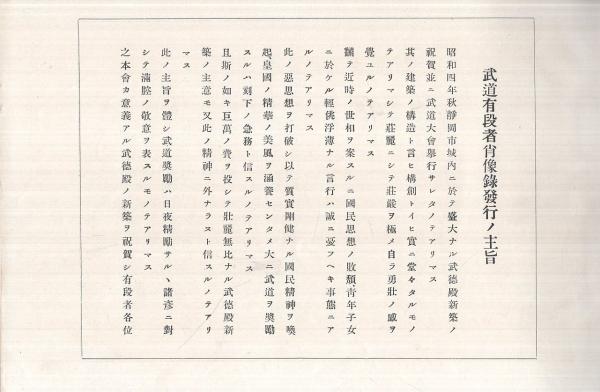 武道有段者肖像錄發行ノ主旨
昭和四年秋靜岡市城内ニ於テ臺大ナル武德殿新築ノ
祝賀並ニ武道大會擧行サレタノテアリマス
其ノ建築ノ構造ト言ヒ構創トイヒ實ニ堂々タルモノ
テアリマシテ莊麗ニシテ莊嚴ヲ極メ自ラ勇壯ノ感ヲ
覺ユルノテアリマス
飜テ近時ノ世相ヲ案スルニ國民思想ノ敗頽靑年子女
ニ於ケル輕佻浮薄ナル言行ハ誠ニ憂フヘキ事態ニア
ルノテアリマス
此ノ惡思想ヲ打破シ以テ質實剛健ナル國民精神ヲ喚
起皇國ノ精華ノ美風ヲ涵養センタメ大ニ武道ヲ奬勵
スルハ刻下ノ急務ト信スルノテアリマス
且斯ノ如キ巨萬ノ費ヲ投シテ壯麗無比ナル武德殿新
築ノ主意モ又此ノ精神ニ外ナラスト信スルノテアリ
マス
此ノ主旨ヲ體シ武道奬勵ハ日夜精勵サルヽ諸彦ニ對
シテ滿腔ノ敬意ヲ表スルモノテアリマス
之本會カ意義アル武德殿ノ新築ヲ祝賀シ有段者各位